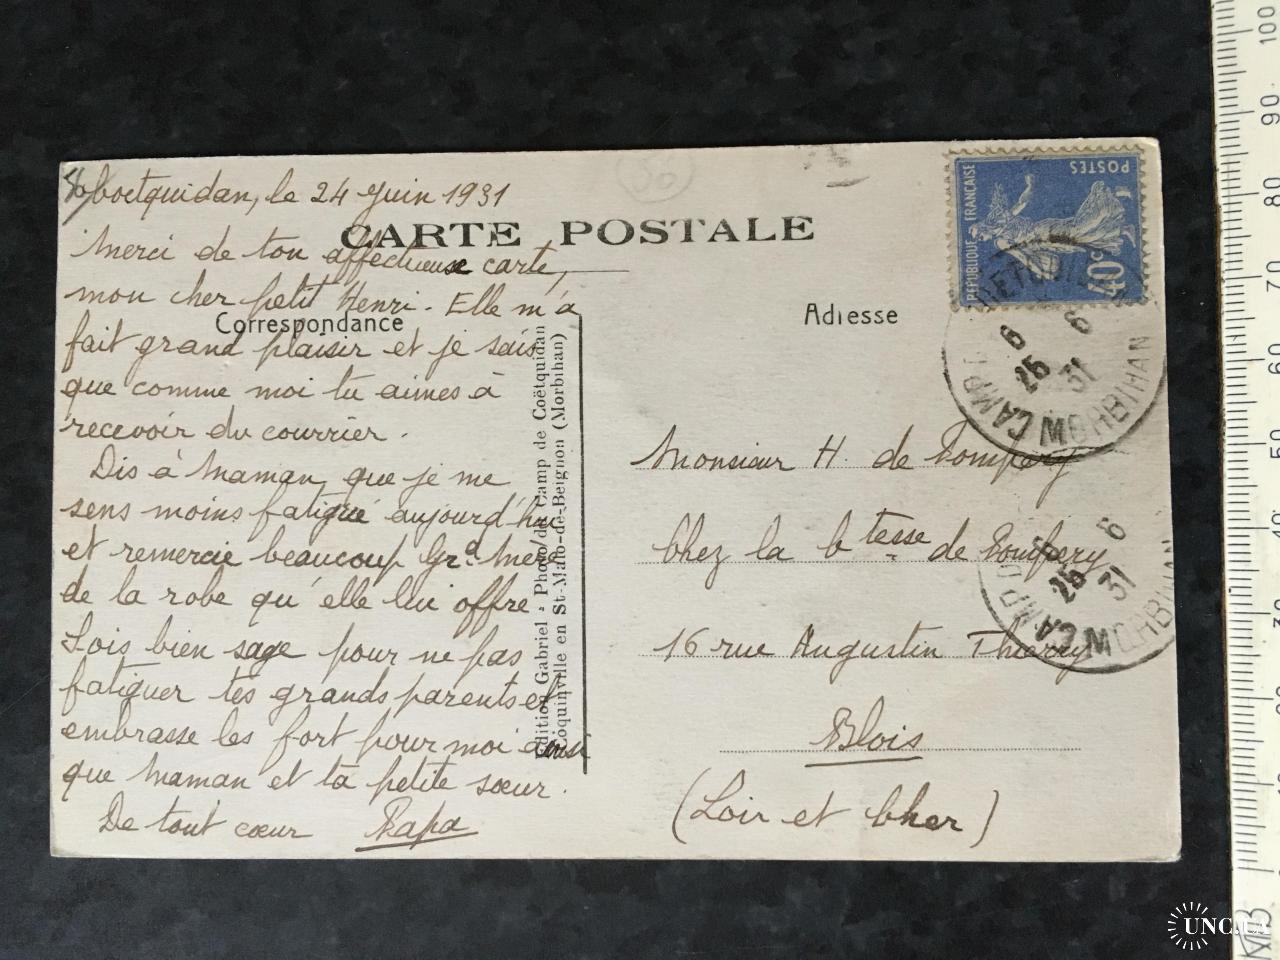 Coëtquidan, le 24 Juin 1931
CARTE POSTALE
Merci de ton affectueuse carte,
mon cher petit Henri. Elle m'a
Correspondance
fait grand plaisir et je sais
que comme moi tu aimes à
recevoir du courrier.
Dis à Maman, que je me
sens moins fatigué aujourd'hui
et remercie beaucoup Grd Mère
de la robe qu'elle lui offre
Sois bien sage pour ne pas
fatiguer tes grands parents et
embrasse les fort pour moi ainsi
que Maman et ta petite sœur.
De tout cœur Papa
Edition Gabriel - Photo du Camp de Coëtquidan
Coquinville en St-Malo-de-Beignon (Morbihan)
Adresse
Monsieur H. de Pompery
Chez la Ctesse de Pompery
16 rue Augustin Thierry
Blois
(Loir et Cher)
REPUBLIQUE FRANÇAISE
POSTES
40c
CAMP DE COETQUIDAN
6
25 6
31
MORBIHAN
CAMP D
6
25 6
31
MORBIHAN
50
100
90
80
70
60
50
40
30
20
10
UNC.UA